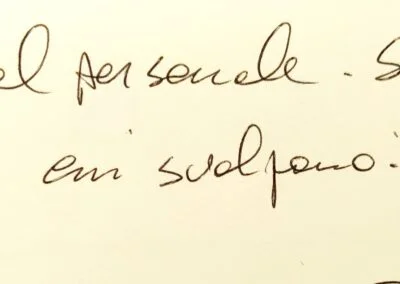 el personale. S
cui svolgono: